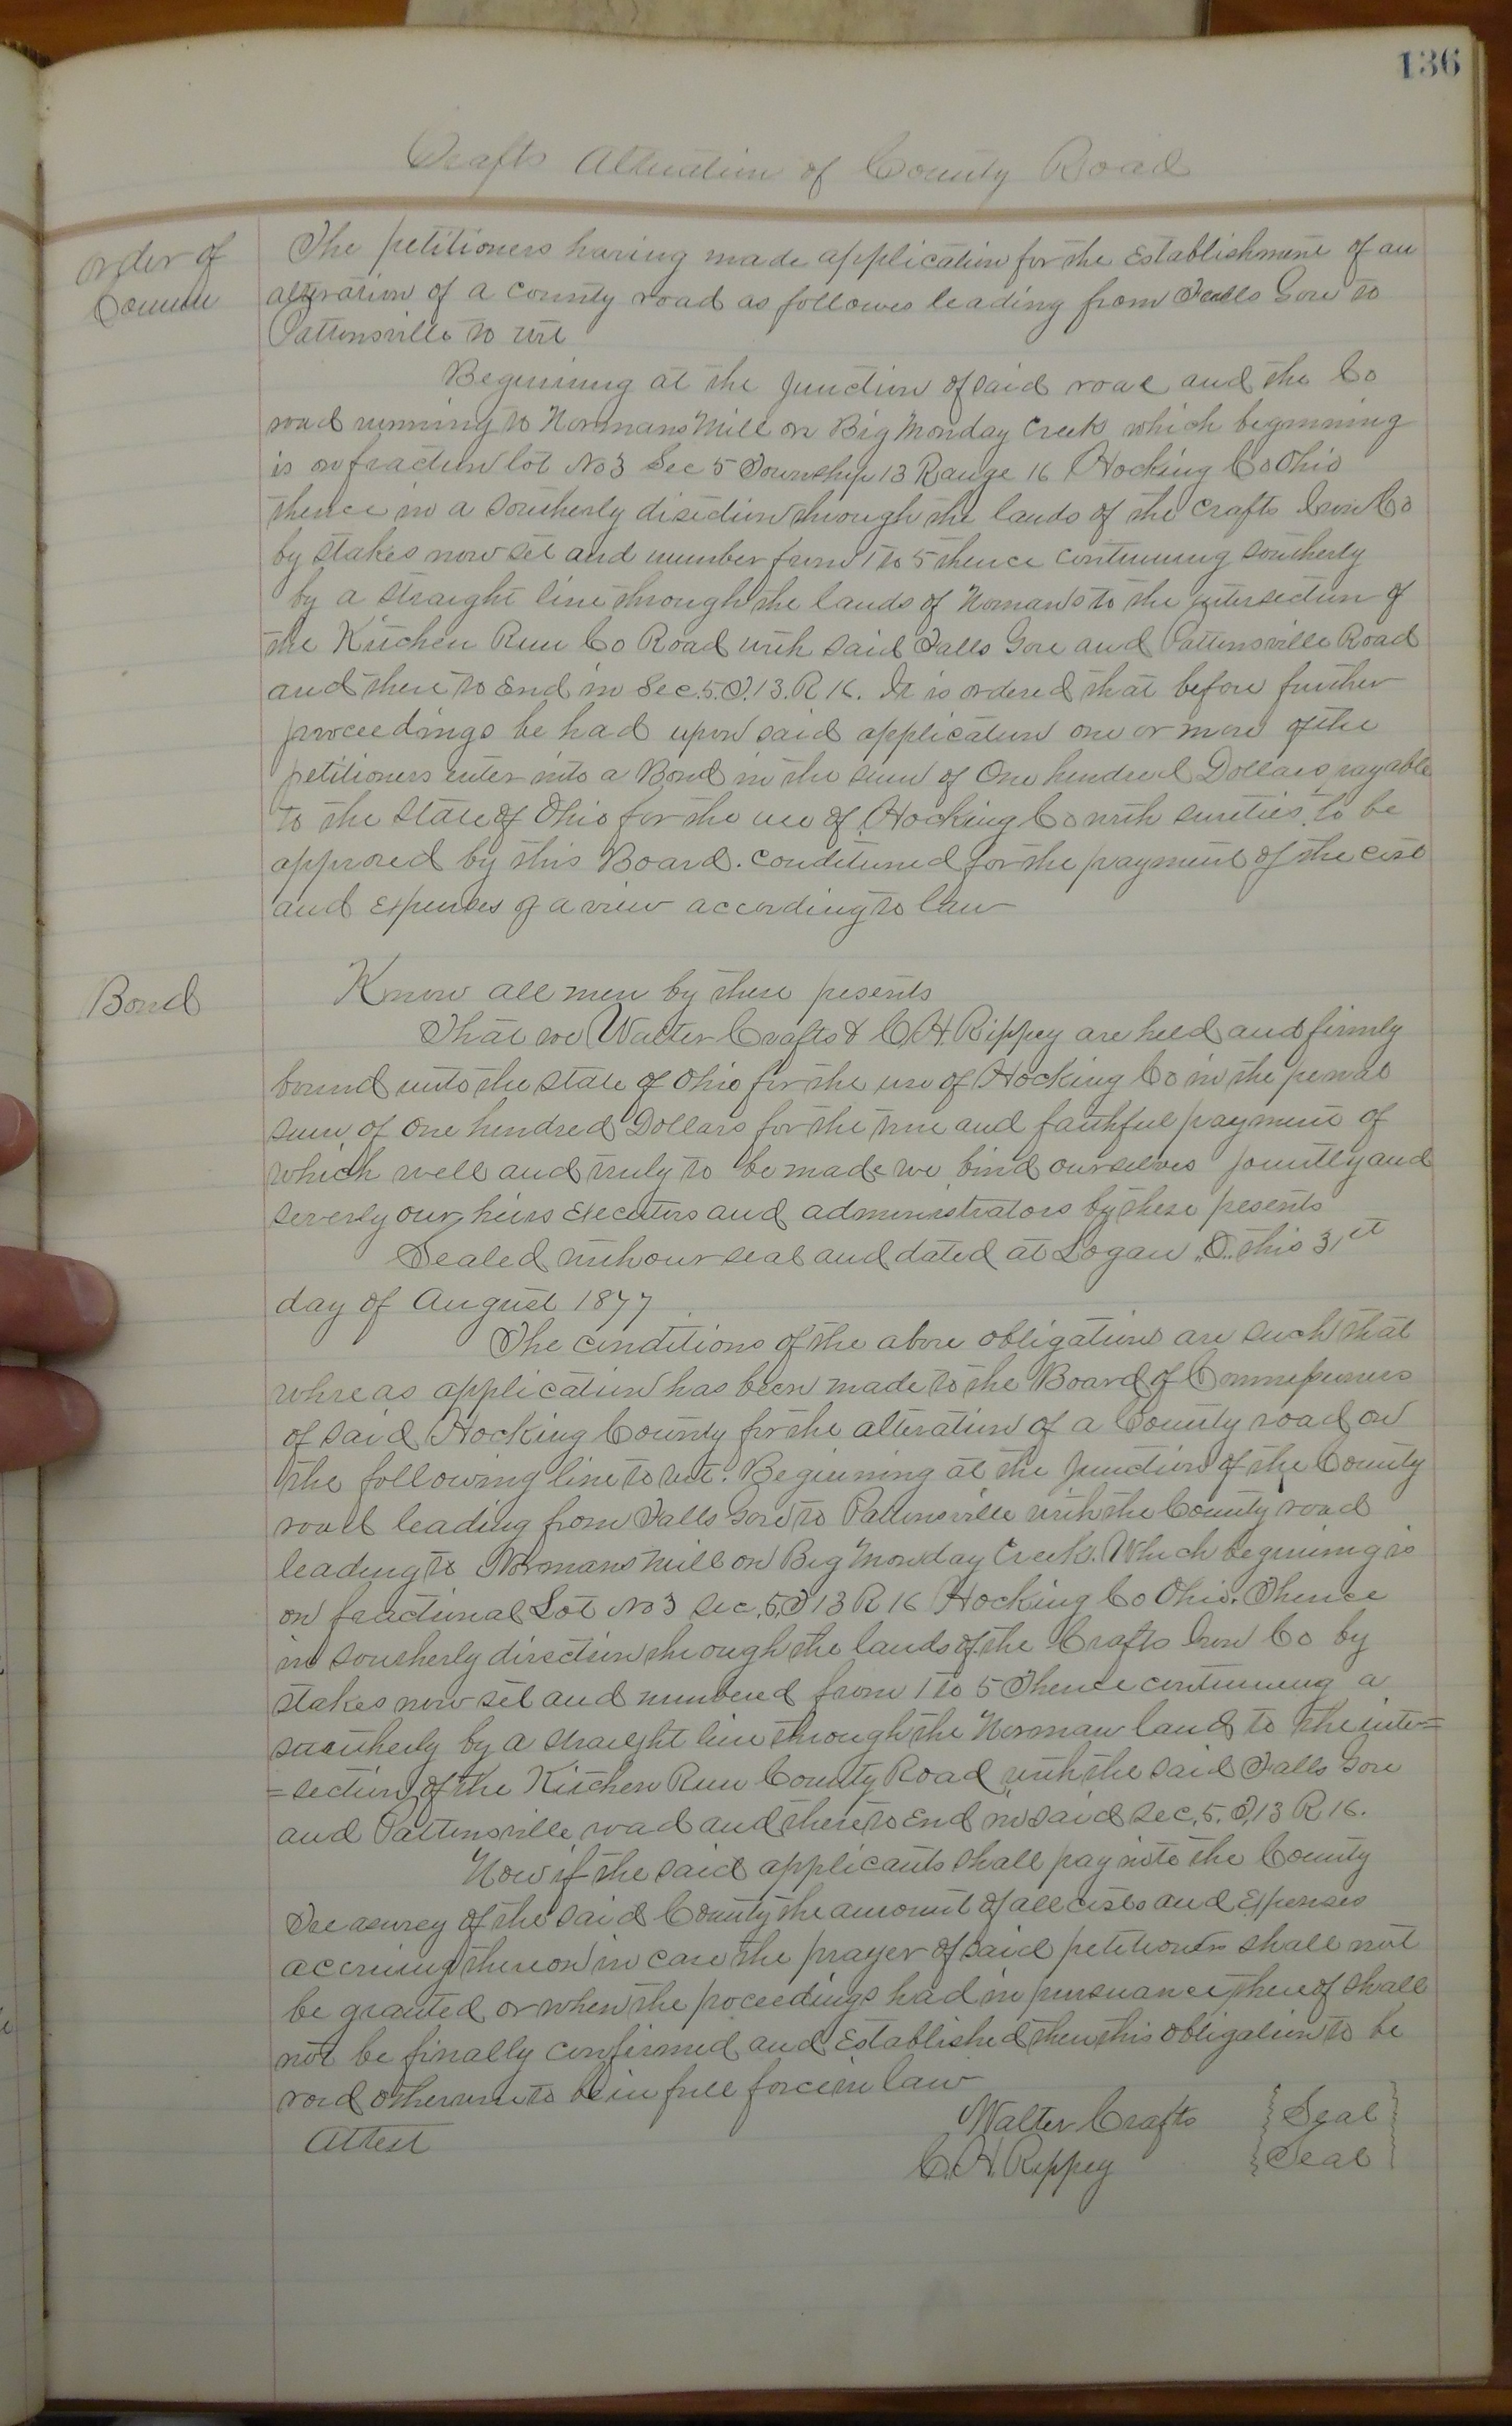 136
Crafts Alteration of County Road
Order of
Commr
The petitioners having made application for the Establishment of an
alteration of a county road as follows leading from Falls Gore to
Pattonsville to wit
Beginning at the Junction of said road and the Co
road running to Normans Mill on Big Monday Creek which beginning
is on fraction lot No 3 Sec 5 Township 13 Range 16 Hocking Co Ohio
thence in a southerly direction through the lands of the Crafts Iron Co
by stakes now set and number from 1 to 5 thence continuing southerly
by a straight line through the lands of Normans to the intersection of
the Kitchen Run Co Road with said Falls Gore and Pattonsville Road
and there to End in Sec. 5. T. 13. R. 16. It is ordered that before further
proceedings be had upon said application one or more of the
petitioners enter into a Bond in the sum of One hundred Dollars payable
to the State of Ohio for the use of Hocking Co with sureties to be
approved by this Board. Conditioned for the payment of the cost
and Expenses of a view according to law
Bond
Know all men by these pesents
That we Walter Crafts & C. H. Rippey are held and firmly
bound unto the state of Ohio for the use of Hocking Co in the penal
sum of One hundred Dollars for the true and faithful payment of
which well and truly to be made we bind ourselves jointly and
severly our heirs Executors and administrators by these pesents
Sealed with our seal and dated at Logan O. this 31st
day of August 1877
The conditions of the above obligations are such that
whreas application has been made to the Board of Commissioners
of said Hocking County for the alteration of a County road on
the following line to wit: Beginning at the Junction of the County
road leading from Falls Gore to Pattonsville with the County road
leading to Normans Mill on Big Monday Creek. Which beginning is
on fractional Lot No 3 Sec, 5, T 13 R 16 Hocking Co Ohio. Thence
in southerly direction through the lands of the Crafts Iron Co by
stakes now set and numbered from 1 to 5 Thence continuing a
southerly by a straight line through the Norman land to the inter=
=section of the Kitchen Run County Road with the said Falls Gore
and Pattonsville road and there to End in said Sec, 5. T, 13 R 16.
Now if the said applicants shall pay into the County
Treasurey of the said County the amount of all costs and Expenses
accruing thereon in case the prayer of said petitioners shall not
be granted or when the poceedings had in pursuance thereof shall
not be finally confirmed and Established then this obligation to be
void otherwise to be in full force in law
Attest
Walter Crafts {Seal}
C. H. Rippey {Seal}